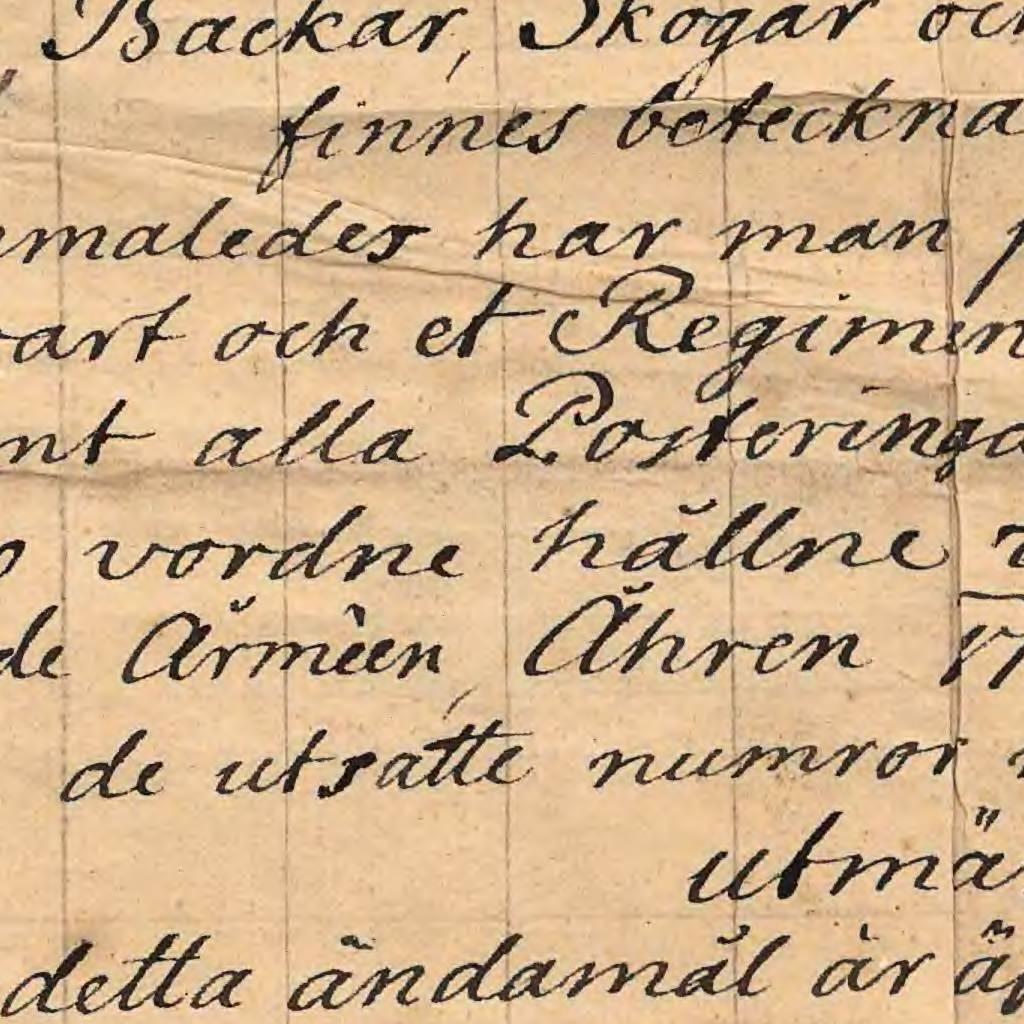 Backar, Skogar och
finnes beteckna
maledes har man
art och et Regimen
nt alla Posteringa
vordne hållne
de Armèen, Åhren 17
de utsatte numror
utmä
detta ändamål är äf